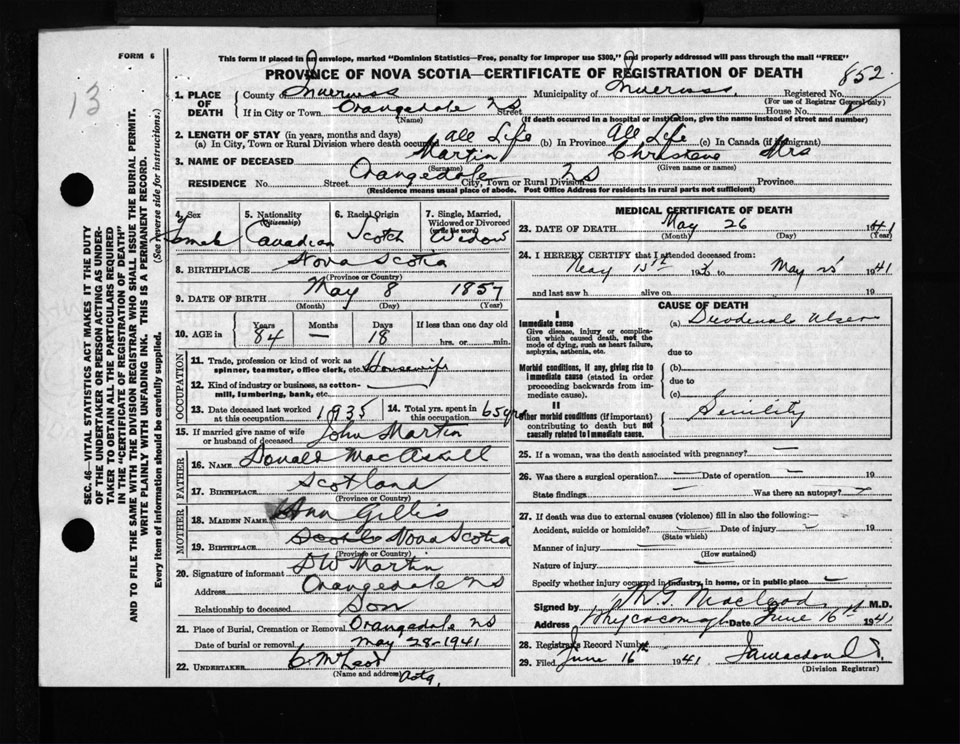 FORM 6
This form if placed in an envelope, marked "Dominion Statistics—Free, penalty for improper use $300," and properly addressed will pass through the mail "FREE"
PROVINCE OF NOVA SCOTIA—CERTIFICATE OF REGISTRATION OF DEATH
852
13
1. PLACE OF DEATH County of Inverness Municipality of Inverness Registered No.
(For use of Registrar General only)
If in City or Town Orangedale NS Street House No.
(Name) (If death occurred in a hospital or institution, give the name instead of street and number)
2. LENGTH OF STAY (in years, months and days)
(a) In City, Town or Rural Division where death occurred All Life (b) In Province All Life (c) In Canada (if immigrant)
3. NAME OF DECEASED Martin Christene Mrs
(Surname) (Given name or names)
RESIDENCE No. Street Orangedale City, Town or Rural Division NS Province
(Residence means usual place of abode. Post Office Address for residents in rural parts not sufficient)
4. Sex 5. Nationality (Citizenship) 6. Racial Origin 7. Single, Married, Widowed or Divorced (write the word)
Canadian Scotch Widow
8. BIRTHPLACE Nova Scotia
(Province or Country)
9. DATE OF BIRTH May 8 1857
(Month) (Day) (Year)
10. AGE in Years Months Days If less than one day old
84 — 18 hrs. or min.
OCCUPATION
11. Trade, profession or kind of work as spinner, teamster, office clerk, etc. Housewife
12. Kind of industry or business, as cotton-mill, lumbering, bank, etc. —
13. Date deceased last worked at this occupation 1935 14. Total yrs. spent in this occupation 65 yrs
15. If married give name of wife or husband of deceased John Martin
FATHER
16. NAME Donald MacAskill
17. BIRTHPLACE Scotland
(Province or Country)
MOTHER
18. MAIDEN NAME Ann Gillis
19. BIRTHPLACE Nova Scotia
(Province or Country)
20. Signature of informant D W Martin
Address Orangedale NS
Relationship to deceased Son
21. Place of Burial, Cremation or Removal Orangedale NS
Date of burial or removal May 28-1941
22. UNDERTAKER C McLeod
(Name and address)
MEDICAL CERTIFICATE OF DEATH
23. DATE OF DEATH May 26 1941
(Month) (Day) (Year)
24. I HEREBY CERTIFY that I attended deceased from:
May 15th to May 25 1941
and last saw h alive on 19
CAUSE OF DEATH
I
Immediate cause (a) Duodenal Ulcer
Give disease, injury or complication which caused death, not the mode of dying, such as heart failure, asphyxia, asthenia, etc.
due to
Morbid conditions, if any, giving rise to immediate cause (stated in order proceeding backwards from immediate cause).
(b)
due to
(c)
II
Other morbid conditions (if important) contributing to death but not causally related to immediate cause.
Senility
25. If a woman, was the death associated with pregnancy? —
26. Was there a surgical operation? — Date of operation — 19
State findings — Was there an autopsy? —
27. If death was due to external causes (violence) fill in also the following:—
Accident, suicide or homicide? — Date of injury — 19
(State which)
Manner of injury —
(How sustained)
Nature of injury —
Specify whether injury occurred in industry, in home, or in public place —
Signed by Macleod M.D.
Address Whycocomagh Date June 16th 1941
28. Registrar's Record Number
29. Filed June 16th 1941
(Division Registrar)
SEC. 46—VITAL STATISTICS ACT MAKES IT THE DUTY
OF THE UNDERTAKER OR PERSON ACTING AS UNDER-
TAKER TO OBTAIN ALL THE PARTICULARS REQUIRED
IN THE "CERTIFICATE OF REGISTRATION OF DEATH"
AND TO FILE THE SAME WITH THE DIVISION REGISTRAR WHO SHALL ISSUE THE BURIAL PERMIT.
WRITE PLAINLY WITH UNFADING INK. THIS IS A PERMANENT RECORD.
Every item of information should be carefully supplied. (See reverse side for instructions.)